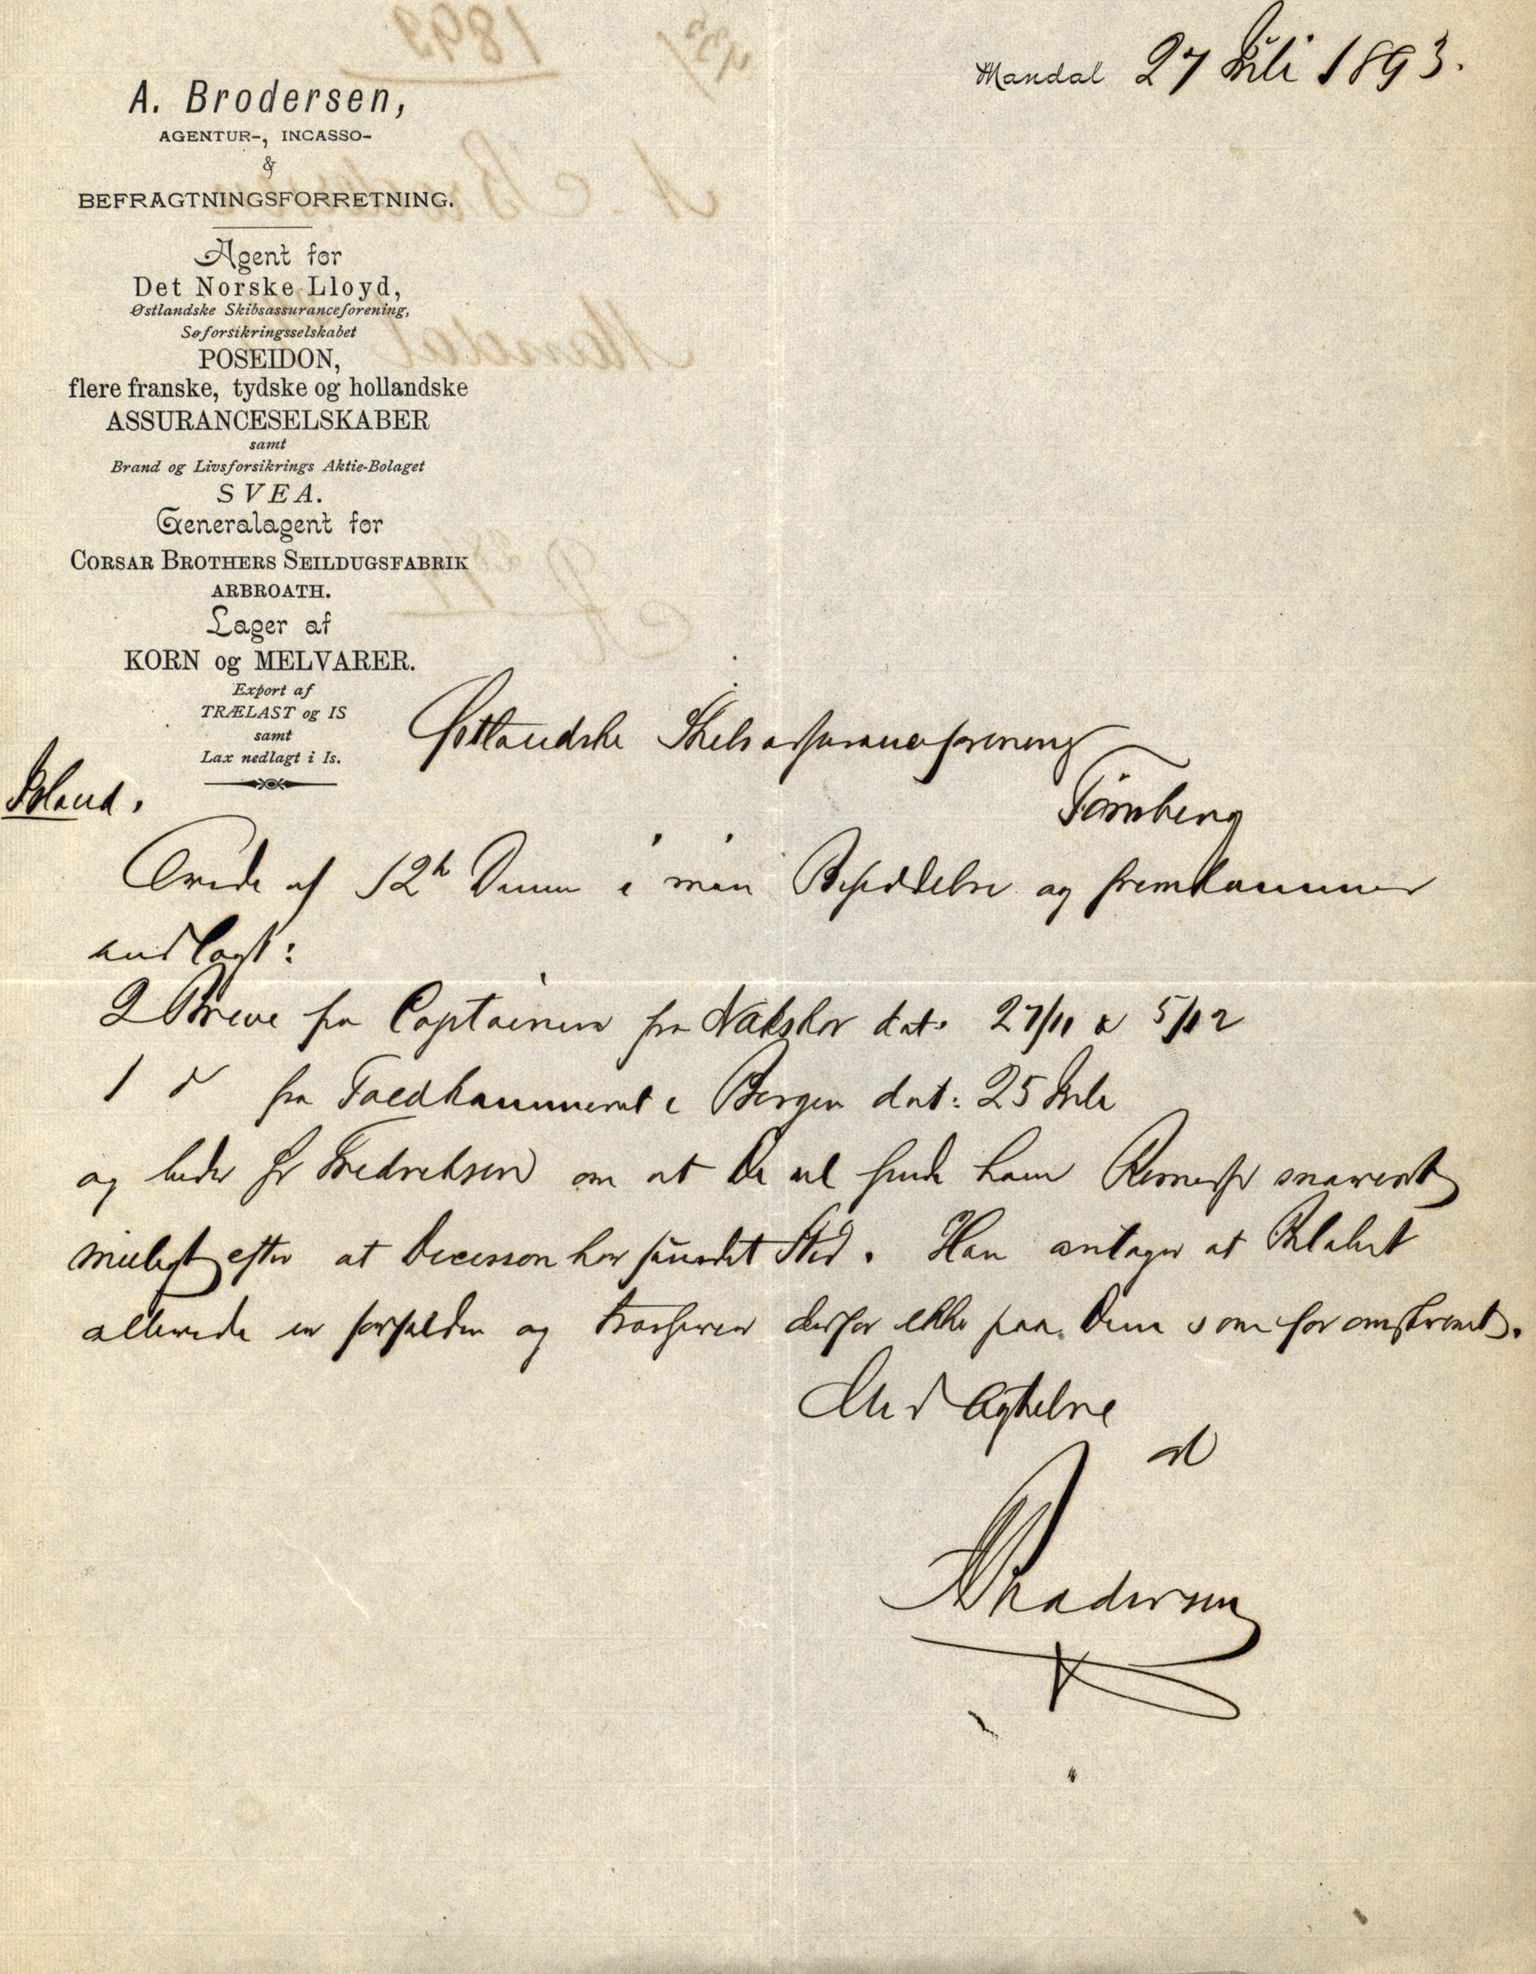 Mandal 27 Juli 1893.
A. Brodersen,
AGENTUR-, INCASSO-
&
BEFRAGTNINGSFORRETNING.
Agent for
Det Norske Lloyd,
Østlandske Skibsassuranceforening,
Søforsikringsselskabet
POSEIDON,
flere franske, tydske og hollandske
ASSURANCESELSKABER
samt
Brand og Livsforsikrings Aktie-Bolaget
SVEA.
Generalagent for
CORSAR BROTHERS SEILDUGSFABRIK
ARBROATH.
Lager af
KORN og MELVARER.
Export af
TRÆLAST og IS
samt
Lax nedlagt i Is.
Østlandske Skibsassuranceforening
Tønsberg
Island.
Ærede af 12te Dennes i min Besiddelse og fremkommer
indlagt:
2 Breve fra Captainen fra Nakskov dat. 27/11 & 5/12
1 d fra Toldkammeret i Bergen dat: 25 Juli
og beder Hr Fredriksen om at De vil sende ham Remesse snarest
muligt efter at Decisson har fundet Sted. Han antager at Beløbet
allerede er forfalden og trasserer derfor ikke paa Dem som før omskrevet.
Med Agtelse
A Brodersen